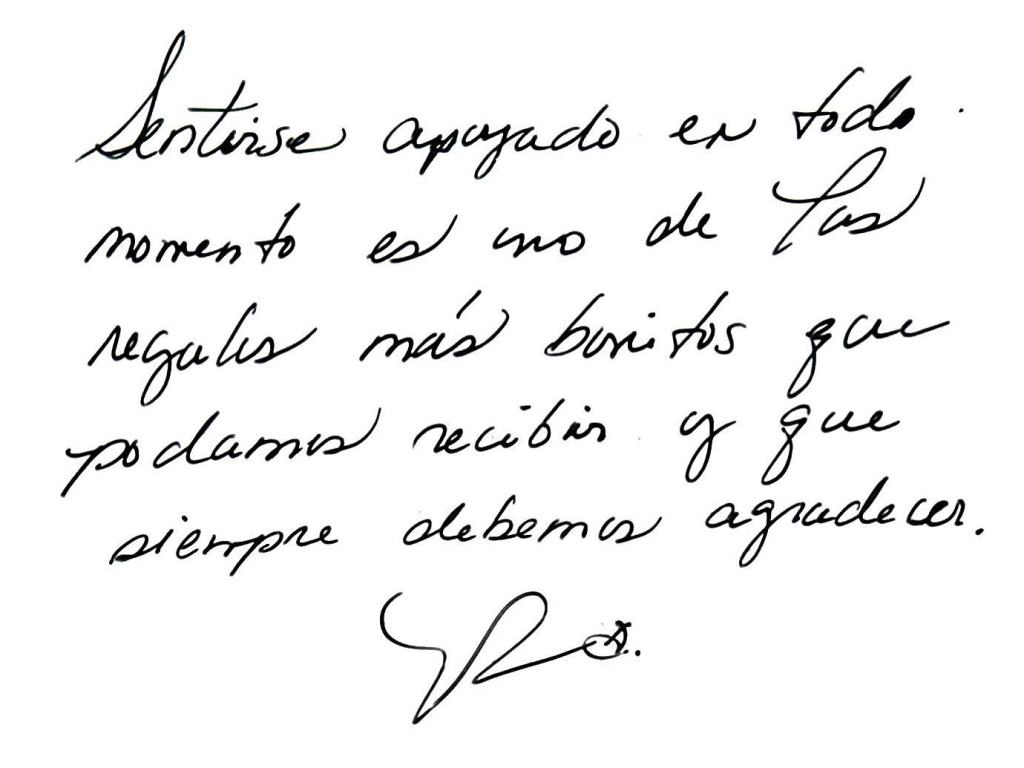 Sentirse apoyado en todo
momento es uno de las
regalos más bonitos que
podamos recibir y que
siempre debemos agradecer.